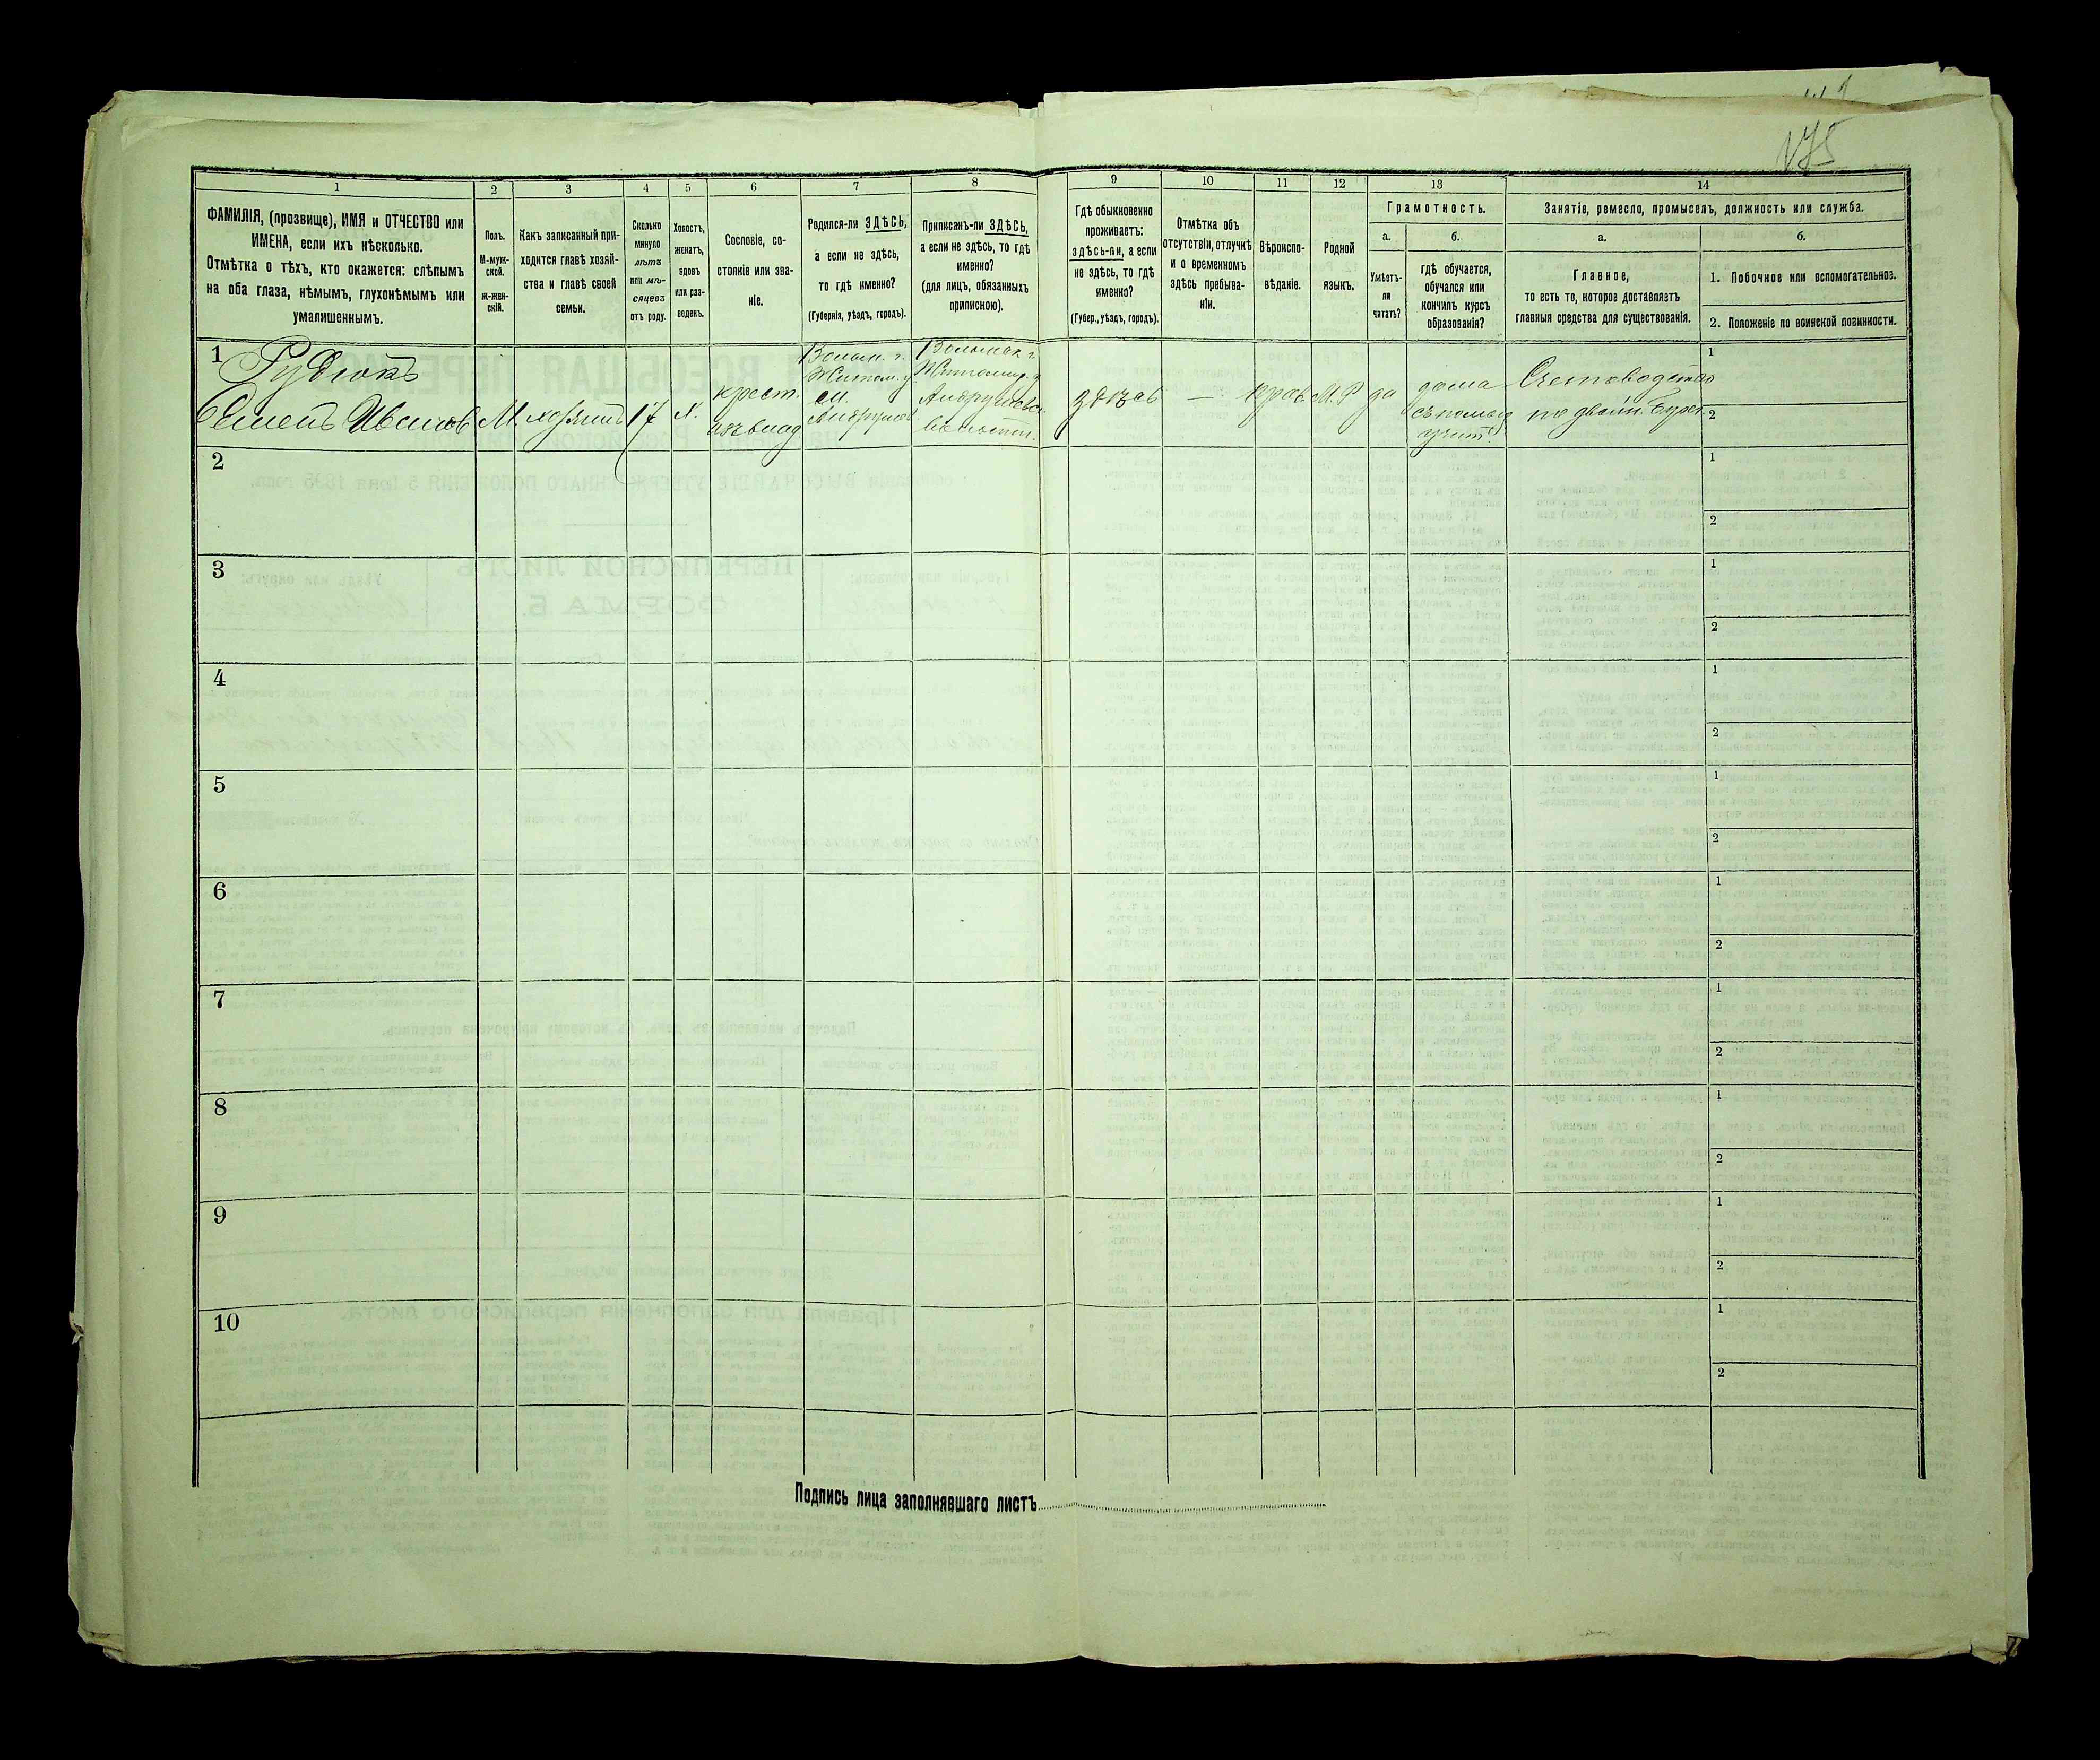 175
1
2
3
4
5
6
7
8
9
10
11
12
13
14
ФАМИЛІЯ, (прозвище), ИМЯ и ОТЧЕСТВО или
ИМЕНА, если ихъ нѣсколько.
Отмѣтка о тѣхъ, кто окажется: слѣпымъ
на оба глаза, нѣмымъ, глухонѣмымъ или
умалишеннымъ.
Полъ.
М-муж-
ской.
ж-жен-
скій.
Какъ записанный при-
ходится главѣ хозяй-
ства и главѣ своей
семьи.
Сколько
минуло
лѣтъ
или мѣ-
сяцевъ
отъ роду.
Холостъ,
женатъ,
вдовъ
или раз-
веденъ.
Сословіе, со-
стояніе или зва-
ніе.
Родился-ли ЗДѢСЬ,
а если не здѣсь,
то гдѣ именно?
(Губернія, уѣздъ, городъ).
Приписанъ-ли ЗДѢСЬ,
а если не здѣсь, то гдѣ
именно?
(для лицъ, обязанныхъ
припискою).
Гдѣ обыкновенно
проживаетъ:
здѣсь-ли, а если
не здѣсь, то гдѣ
именно?
(Губер., уѣздъ, городъ).
Отмѣтка объ
отсутствіи, отлучкѣ
и о временномъ
здѣсь пребыва-
ніи.
Вѣроиспо-
вѣданіе.
Родной
языкъ.
Грамотность.
а.
Умѣетъ-
ли
читать?
б.
гдѣ обучается,
обучался или
кончилъ курсъ
образованія?
Занятіе, ремесло, промыселъ, должность или служба.
а.
Главное,
то есть то, которое доставляетъ
главныя средства для существованія.
б.
1. Побочное или вспомогательное.
2. Положеніе по воинской повинности.
1
Рудюкъ
Семенъ Иванов
М.
хозяинъ
17
х.
крест.
изъ влад
Волын. г.
Житом. у.
м.
Андрушов
Волынск г.
Житомир. у
Андрушевск.
волости.
здѣсь
—
прав.
М. Р
да
дома
Счетоводство
1
2
2
1
2
3
1
2
4
1
2
5
1
2
6
1
2
7
1
2
8
1
2
9
1
2
10
1
2
Подпись лица заполнявшаго листъ